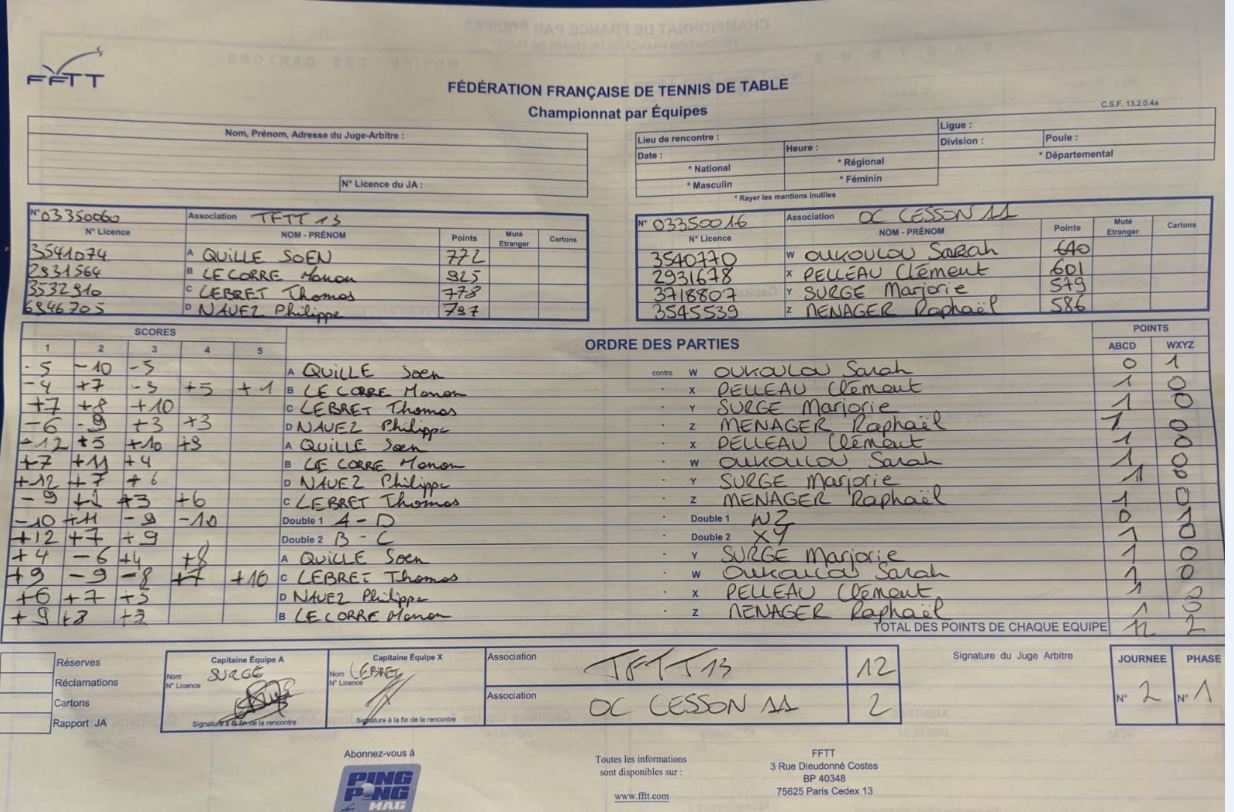 FFTT
FÉDÉRATION FRANÇAISE DE TENNIS DE TABLE
Championnat par Équipes
C.S.F. 13.2.0.4a
Nom, Prénom, Adresse du Juge-Arbitre :
N° Licence du JA :
Lieu de rencontre : Ligue :
Date : Heure : Division : Poule :
* National * Régional * Départemental
* Masculin * Féminin
* Rayer les mentions inutiles
N° 03350060 Association TFTT 13
N° Licence NOM - PRÉNOM Points Muté Etranger Cartons
3541074 A QUILLE SOEN 772
2931564 B LE CORRE Manon 925
3532910 C LEBRET Thomas 778
6946705 D NAUEZ Philippe 797
N° 03350016 Association OC CESSON 11
N° Licence NOM - PRÉNOM Points Muté Etranger Cartons
3540770 W OUKOULOU Sarah 640
2931678 X PELLEAU Clément 601
3718807 Y SURGE Marjorie 579
3545539 Z MENAGER Raphaël 586
SCORES ORDRE DES PARTIES POINTS
1 2 3 4 5 ABCD WXYZ
-5 -10 -5 A QUILLE Soen contre W OUKOULOU Sarah 0 1
-4 +7 -9 +5 +1 B LE CORRE Manon X PELLEAU Clément 1 0
+7 +8 +10 C LEBRET Thomas Y SURGE Marjorie 1 0
-6 -9 +3 +3 D NAUEZ Philippe Z MENAGER Raphaël 1 0
-12 +5 +10 +9 A QUILLE Soen X PELLEAU Clément 1 0
+7 +11 +4 B LE CORRE Manon W OUKOULOU Sarah 1 0
+12 +7 +6 D NAUEZ Philippe Y SURGE Marjorie 1 0
-9 +3 +6 C LEBRET Thomas Z MENAGER Raphaël 1 0
-10 +11 -9 -10 Double 1 A - D Double 1 WZ 0 1
+12 +7 +9 Double 2 B - C Double 2 XY 1 0
+4 -6 +4 +8 A QUILLE Soen Y SURGE Marjorie 1 0
+9 -9 -8 +7 +16 C LEBRET Thomas W OUKOULOU Sarah 1 0
+6 +7 +5 D NAUEZ Philippe X PELLEAU Clément 1 0
+9 +8 B LE CORRE Manon Z MENAGER Raphaël 1 0
TOTAL DES POINTS DE CHAQUE EQUIPE 12 2
Réserves
Réclamations
Cartons
Rapport JA
Capitaine Équipe A
Nom SURGE
N° Licence
Signature à la fin de la rencontre
Capitaine Équipe X
Nom LEBRET
N° Licence
Signature à la fin de la rencontre
Association TFTT 13 12
Association OC CESSON 11 2
Signature du Juge Arbitre
JOURNEE PHASE
N° 2 N° 1
Abonnez-vous à
PING PONG MAG
Toutes les informations
sont disponibles sur :
www.fftt.com
FFTT
3 Rue Dieudonné Costes
BP 40348
75625 Paris Cedex 13